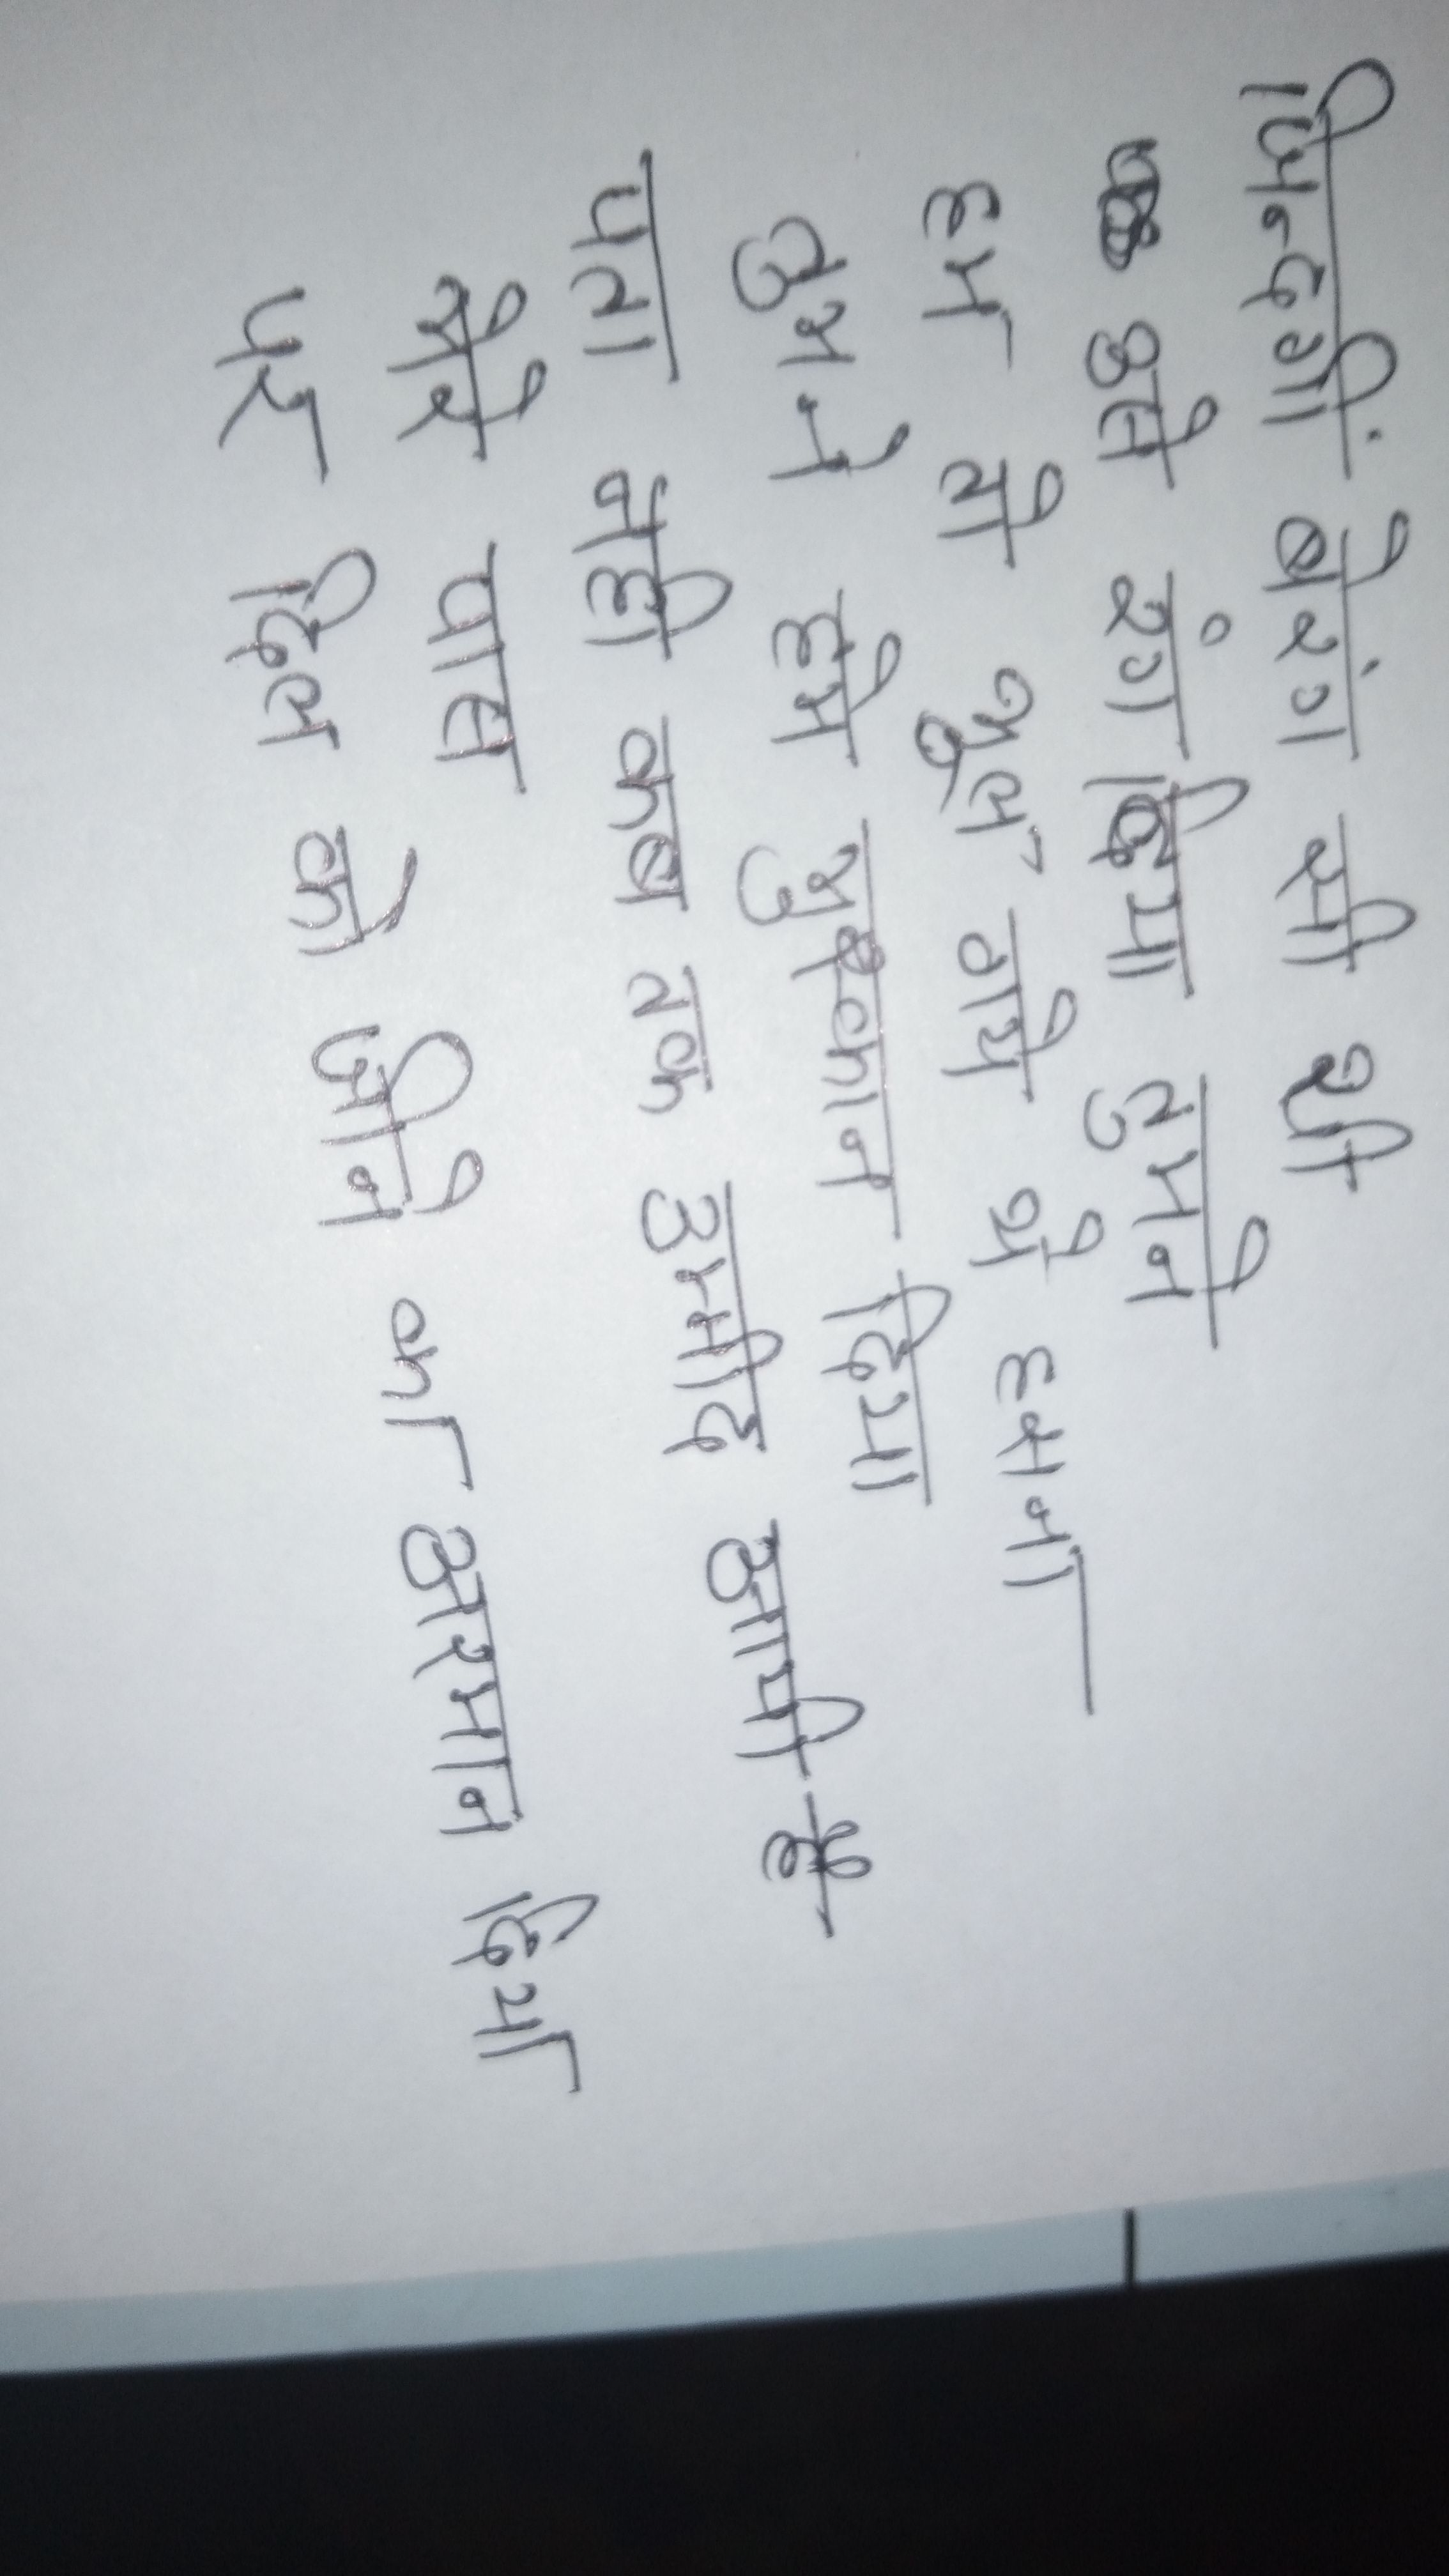 जिन्दगीं बेरंग सी थी
इसे रंग दिया तुमने
हम तो भूल गये थे हसना
तुमने हमे मुस्कान दिया
पता नही कब तक उम्मीद आपी है
मेरे पास
पर दिल को जीने का अरमान दिया